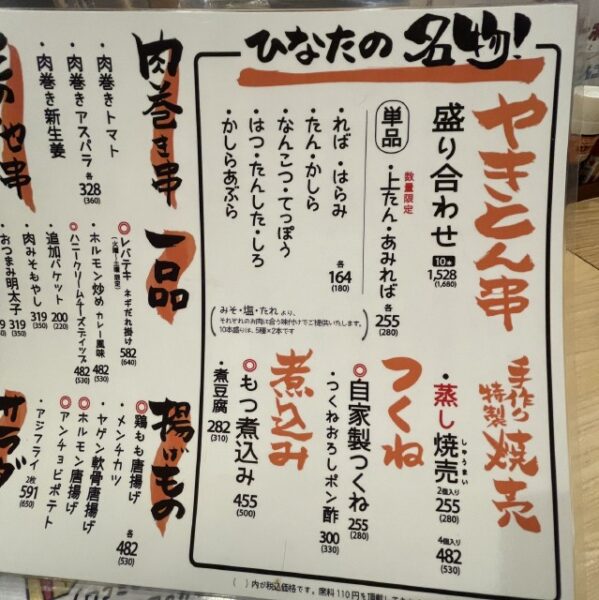 ひなたの名物!
やきとん串
盛り合わせ 10本 1,528
(1,680)
単品
数量限定
・上たん・あみれば 各255
(280)
・れば・はらみ
・たん・かしら
・なんこつ・てっぽう
・はつ・たんした・しろ
・かしらあぶら
各164
(180)
みそ・塩・たれ より、
それぞれのお肉に合う味付けでご提供いたします。
10本盛りは、5種×2本です
手作り
特製
焼売
・蒸し焼売
しゅうまい
2個入り 255
(280)
4個入り 482
(530)
つくね
◎自家製つくね 255
(280)
つくねおろしポン酢 300
(330)
煮込み
◎もつ煮込み 455
(500)
・煮豆腐 282
(310)
( )内が税込価格です。席料110円を頂戴して
肉巻き串
・肉巻きトマト
・肉巻きアスパラ
・肉巻き新生姜
各328
(360)
一品
◎レバテキ ネギだれ掛け 582
(640)
(火曜〜土曜限定)
・ホルモン炒め カレー風味 482
(530)
◎ハニークリームチーズディップ 482
(530)
・追加バケット 200
(220)
・肉みそもやし 319
(350)
・おつまみ明太子 319
(350)
揚げもの
◎鶏もも唐揚げ
・メンチカツ
・ヤゲン軟骨唐揚げ
◎ホルモン唐揚げ
◎アンチョビポテト
各482
(530)
・アジフライ 2枚 591
(650)
サラダ